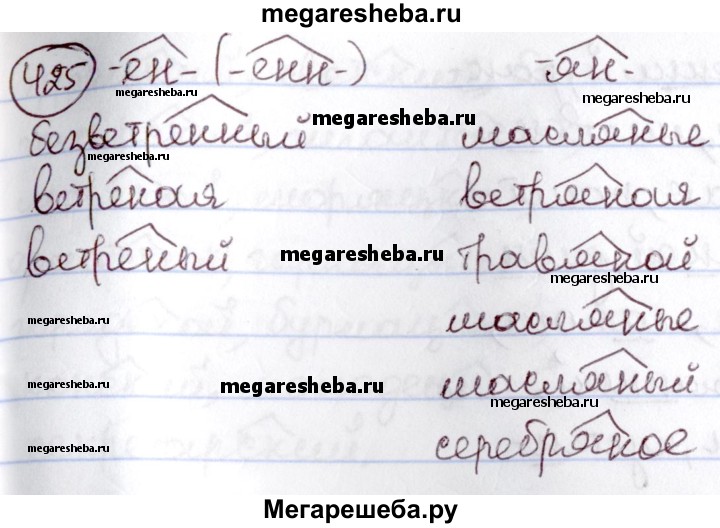 megaresheba.ru
425 -ен- (-енн-) -ян-
megaresheba.ru megaresheba.ru
безветренный megaresheba.ru масляные
megaresheba.ru
ветреная ветряная
ветреный megaresheba.ru травяной
megaresheba.ru
megaresheba.ru масляные
megaresheba.ru megaresheba.ru масляный
megaresheba.ru
megaresheba.ru серебряное
Мегарешеба.ру